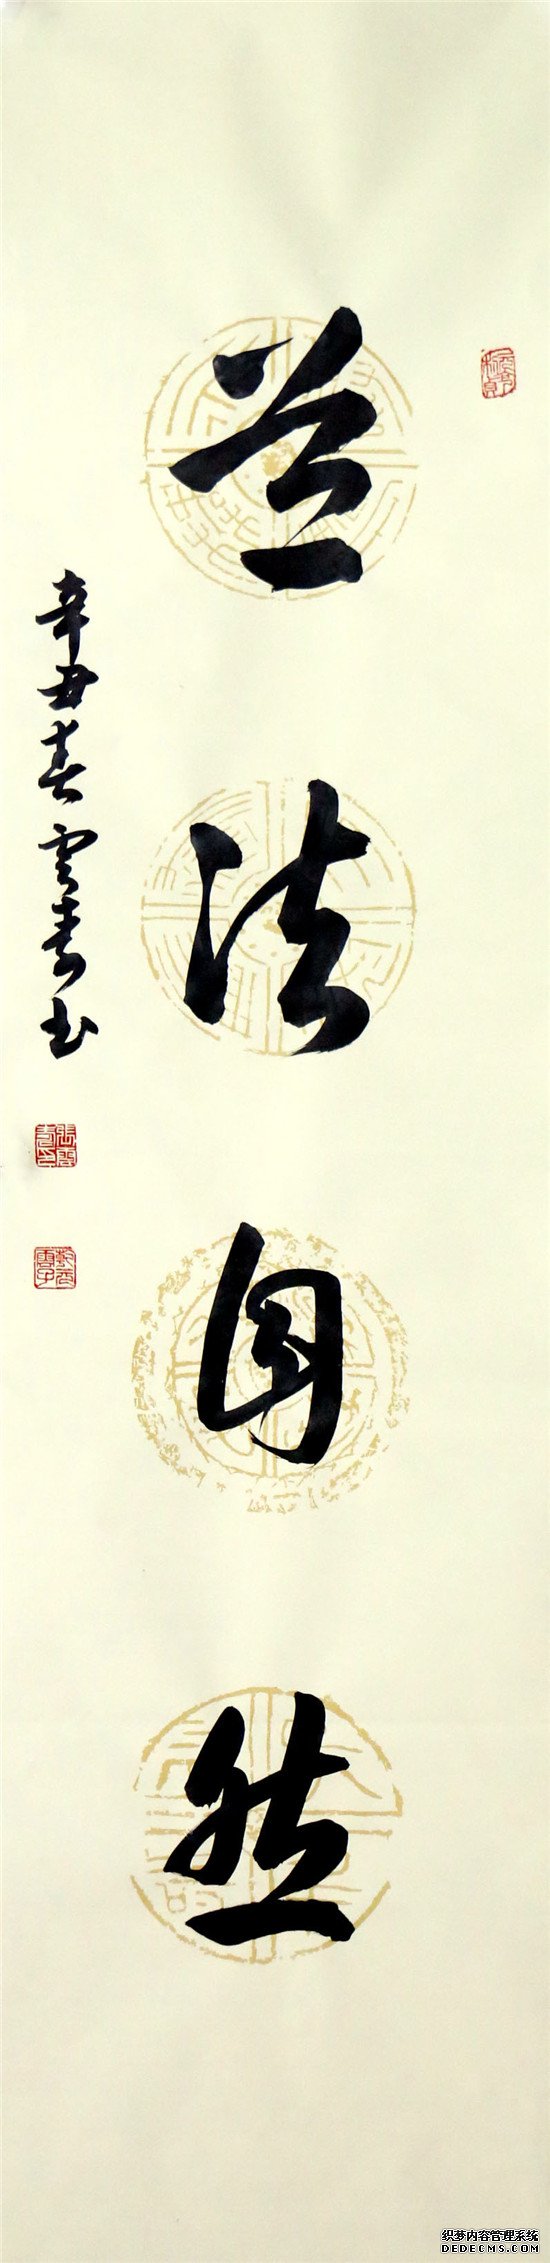 道法自然
辛丑春雲青書
织梦内容管理系统
DEDECMS.COM